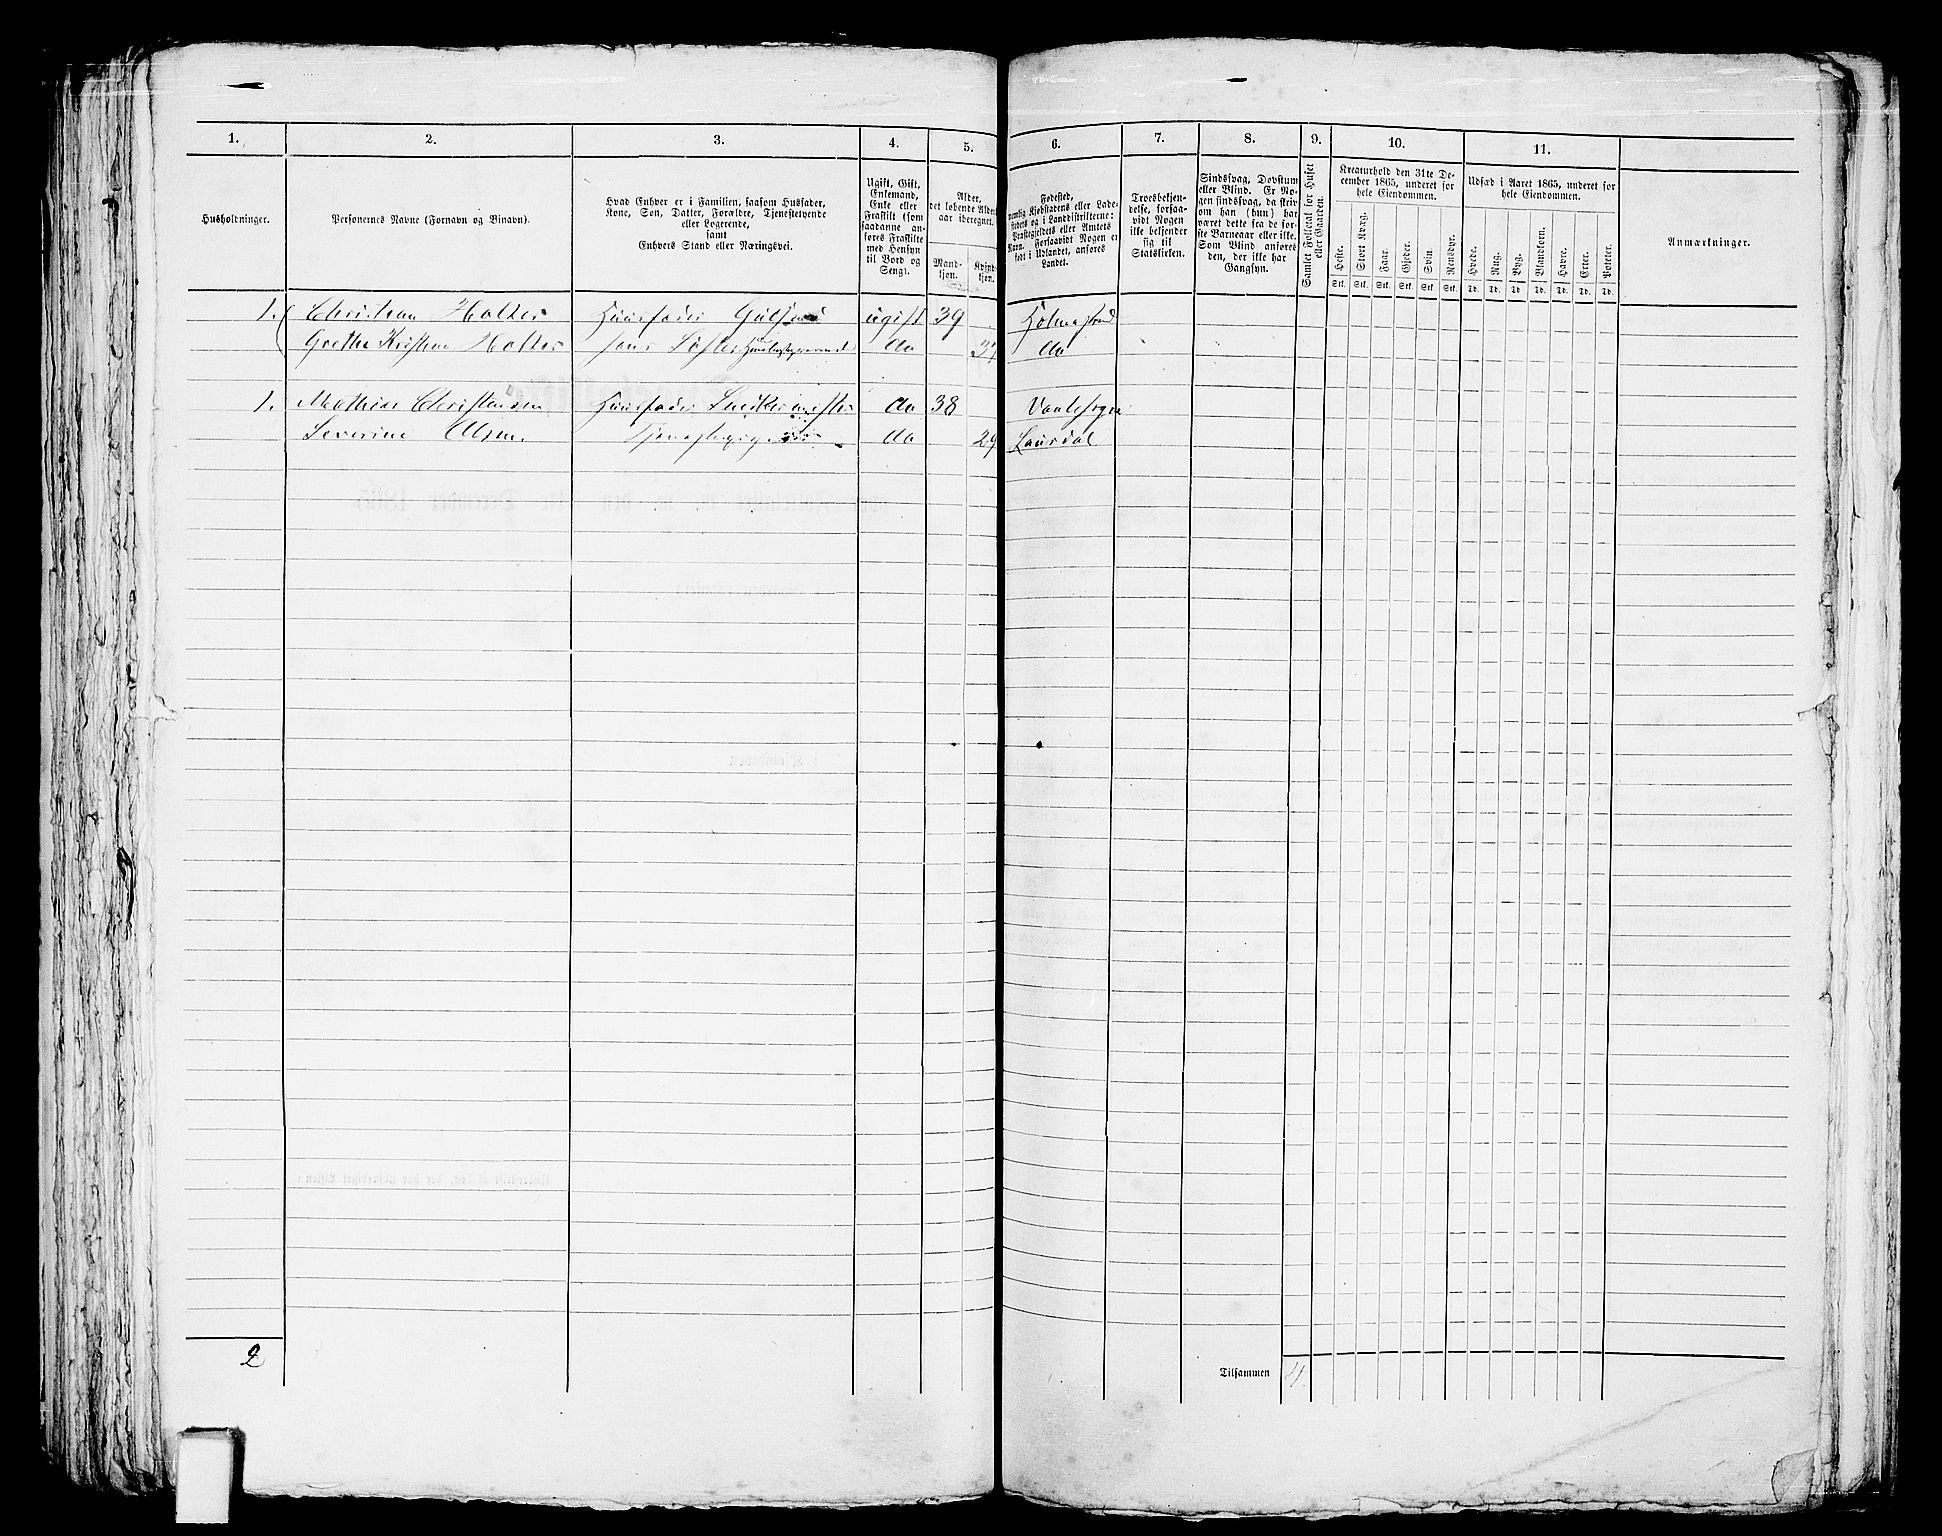 1. 2. 3. 4. 5. 6. 7. 8. 9. 10. 11.
Husholdninger.
Personernes Navne (Fornavn og Binavn).
Hvad Enhver er i Familien, saasom Husfader,
Kone, Søn, Datter, Forældre, Tjenestetyende
eller Logerende,
samt
Enhvers Stand eller Næringsvei.
Ugift, Gift,
Enkemand,
Enke eller
Fraskilt (som
saadanne an-
føres Fraskilte
med Hensyn
til Bord og
Seng).
Alder,
det løbende Alders-
aar iberegnet.
Mand-
kjøn.
Kvind-
kjøn.
Fødested,
nemlig Kjøbstadens eller Lade-
stedets og i Landdistrikterne:
Præstegjældets eller Amtets
Navn. Forsaavidt Nogen er
født i Udlandet, anføres
Landet.
Troesbekjen-
delse, forsaa-
vidt Nogen
ikke bekjender
sig til
Statskirken.
Sindssvag, Døvstum
eller Blind. Er No-
gen sindssvag, da skriv
om han (hun) har
været dette fra de før-
ste Barneaar eller ikke.
Som Blind anføres
den, der ikke har
Gangsyn.
Samlet Folketal for Huset
eller Gaarden.
Kreaturhold den 31te De-
cember 1865, underet for
hele Eiendommen.
Heste. Stort Kvæg. Faar. Gjeder. Svin. Rensdyr.
Stk. Stk. Stk. Stk. Stk. Stk.
Udsæd i Aaret 1865, underet for
hele Eiendommen.
Hvede. Rug. Byg. Blandkorn. Havre. Erter. Poteter.
Td. Td. Td. Td. Td. Td. Td.
Anmærkninger.
1. Christian Holter Huusfader ugift 39 Holmestrand
Grethe Kristine Holter hans Søster Huusbestyrerinde do 37 do
1. Mathias Christensen Huusfader Snedkermester do 38
Severine Olsen Tjenestepige do 29 Laurdal
2
Tilsammen 4.